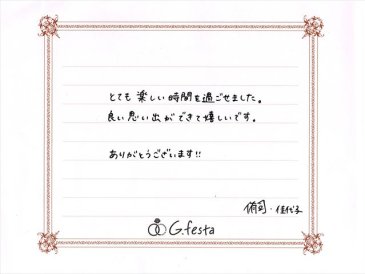 とても楽しい時間を過ごせました。
良い思い出ができて嬉しいです。
ありがとうございます!!
侑司・佳代子
G.festa